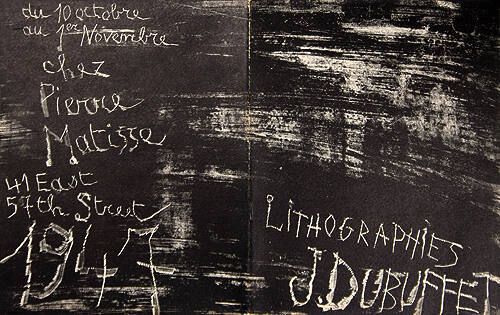 du 10 octobre
au 1er Novembre
chez
Pierre
Matisse
41 East
57th Street
1947
LITHOGRAPHIES
J. DUBUFFET